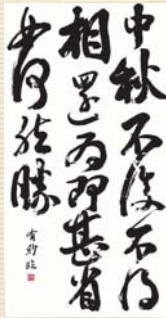 中秋不復不得
相還為即甚省
如何然勝
臨